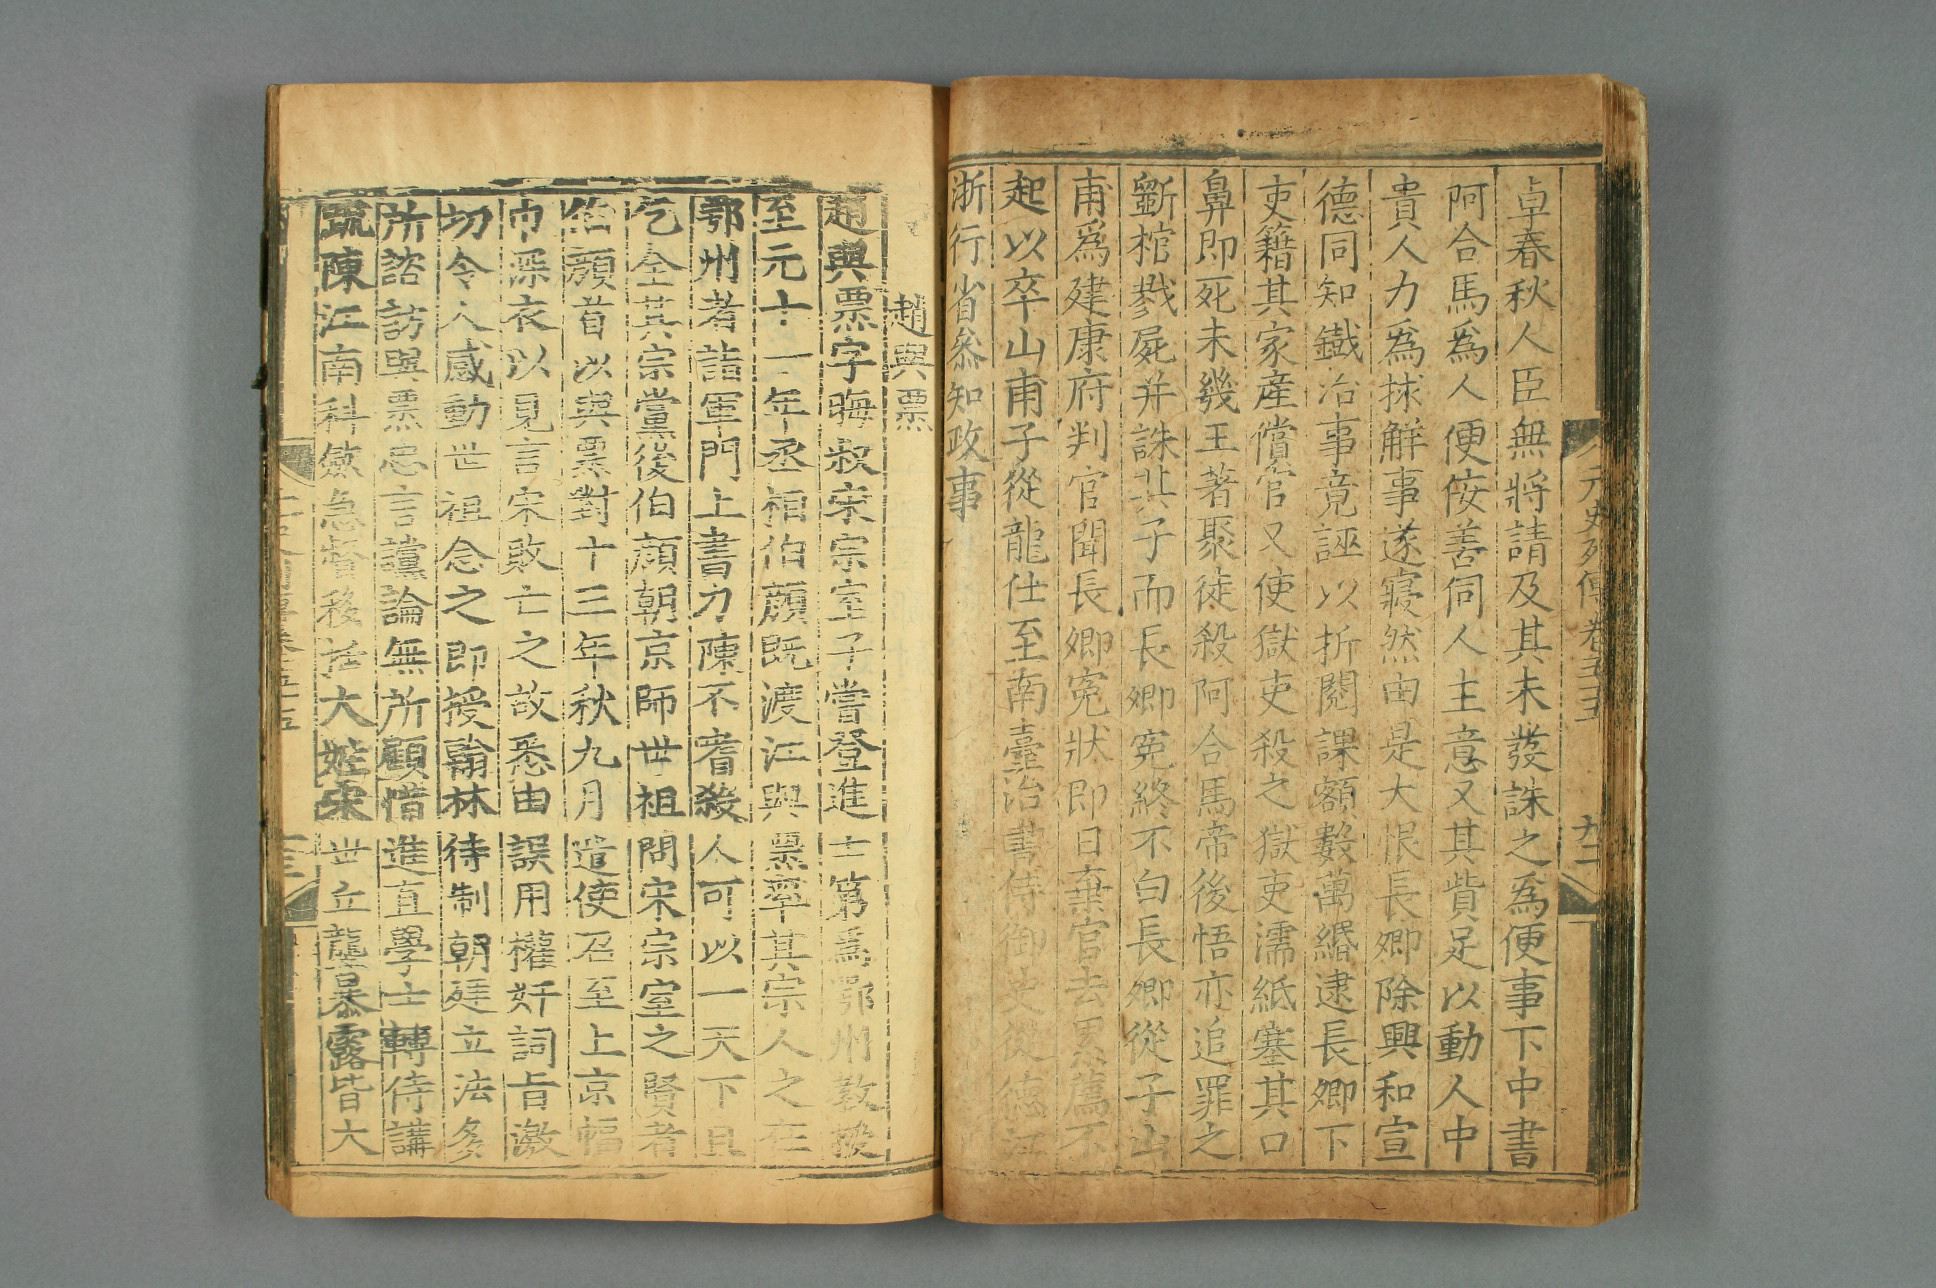 元史列傳卷五十五
卓春秋人臣無將請及其未發誅之為便事下中書
阿合馬爲人便佞善伺人主意又其貲足以動人中
貴人力爲捄解事遂寢然由是大恨長卿除興和宣
德同知鐵冶事竟誣以折閱課額數萬緡逮長卿下
吏籍其家產償官又使獄吏殺之獄吏濡紙塞其口
鼻即死未幾王著聚徒殺阿合馬帝後悟亦追罪之
斵棺戮屍并誅其子而長卿寃終不白長卿從子山
甫爲建康府判官聞長卿寃狀即日棄官去累薦不
起以卒山甫子從龍仕至南臺治書侍御史從德江
浙行省叅知政事
趙與票
趙與票字晦叔宋宗室子嘗登進士第爲鄂州教授
至元十一年丞相伯顏既渡江與票率其宗人之在
鄂州者詣軍門上書力陳不嗜殺人可以一天下且
乞全其宗黨後伯顏朝京師世祖問宋宗室之賢者
伯顏首以與票對十三年秋九月遣使召至上京幅
巾深衣以見言宋敗亡之故悉由誤用權奸詞旨激
切令人感動世祖念之即授翰林待制朝廷立法多
所諮訪與票忠言讜論無所顧惜進直學士轉侍講
疏陳江南科斂急督移括大姓宋世立壟暴露皆大